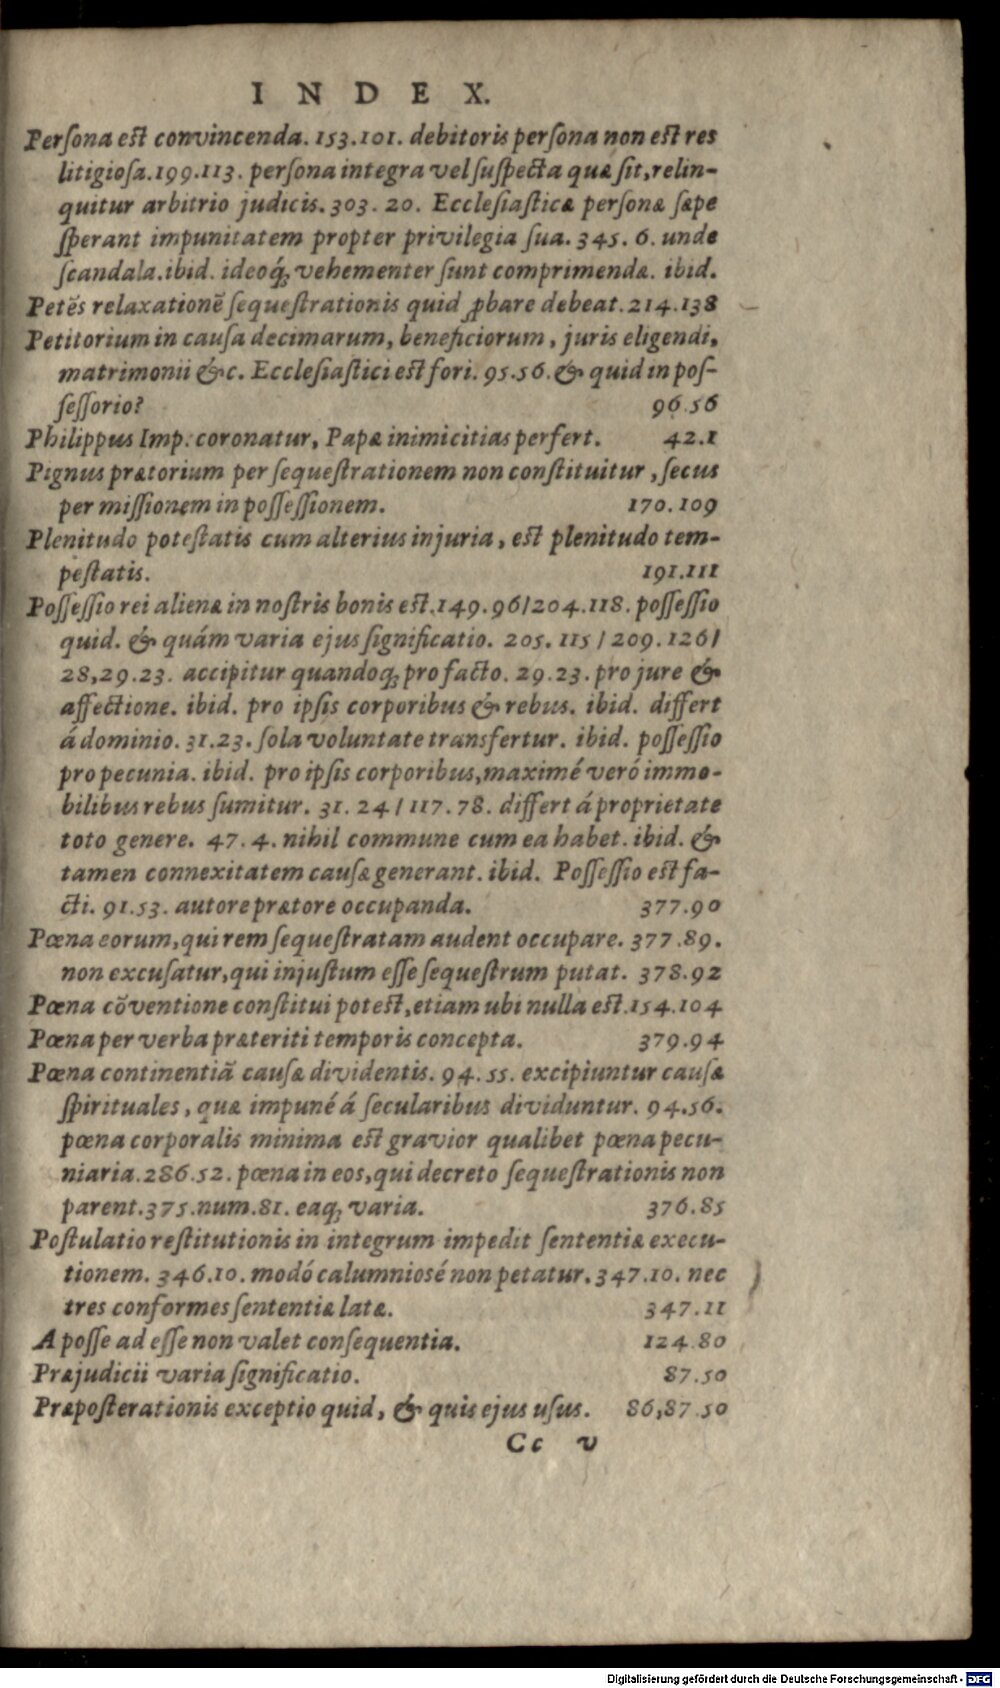 INDEX.
Perſona eſt convincenda. 153.101. debitoris perſona non eſt res
litigioſa.199.113. perſona integra vel ſuſpecta quæ ſit, relin-
quitur arbitrio judicis. 303. 20. Eccleſiaſticæ perſonæ ſæpe
ſperant impunitatem propter privilegia ſua. 345. 6. unde
ſcandala. ibid. ideoq́ꝫ vehementer ſunt comprimendæ. ibid.
Petẽs relaxationẽ ſequeſtrationis quid ꝓbare debeat. 214.138
Petitorium in cauſa decimarum, beneficiorum, juris eligendi,
matrimonii &c. Eccleſiaſtici eſt fori. 95.56. & quid in poſ-
ſeſſorio? 96.56
Philippus Imp. coronatur, Papæ inimicitias perfert. 42.1
Pignus prætorium per ſequeſtrationem non conſtituitur, ſecus
per miſſionem in poſſeſſionem. 170.109
Plenitudo poteſtatis cum alterius injuria, eſt plenitudo tem-
peſtatis. 191.111
Poſſeſſio rei alienæ in noſtris bonis eſt. 149. 96/204.118. poſſeſſio
quid. & quám varia ejus ſignificatio. 205. 115 / 209. 126/
28,29.23. accipitur quandoqꝫ pro facto. 29.23. pro jure &
affectione. ibid. pro ipſis corporibus & rebus. ibid. differt
á dominio. 31.23. ſola voluntate transfertur. ibid. poſſeſſio
pro pecunia. ibid. pro ipſis corporibus, maximé veró immo-
bilibus rebus ſumitur. 31. 24 / 117. 78. differt á proprietate
toto genere. 47. 4. nihil commune cum ea habet. ibid. &
tamen connexitatem cauſæ generant. ibid. Poſſeſſio eſt fa-
cti. 91.53. autore prætore occupanda. 377.90
Pœna eorum, qui rem ſequeſtratam audent occupare. 377.89.
non excuſatur, qui injuſtum eſſe ſequeſtrum putat. 378.92
Pœna cõventione conſtitui poteſt, etiam ubi nulla eſt. 154.104
Pœna per verba præteriti temporis concepta. 379.94
Pœna continentiã cauſæ dividentis. 94. 55. excipiuntur cauſæ
ſpirituales, quæ impuné á ſecularibus dividuntur. 94.56.
pœna corporalis minima eſt gravior qualibet pœna pecu-
niaria. 286.52. pœna in eos, qui decreto ſequeſtrationis non
parent. 375. num. 81. eaqꝫ varia. 376.85
Poſtulatio reſtitutionis in integrum impedit ſententiæ execu-
tionem. 346.10. modó calumnioſé non petatur. 347.10. nec
tres conformes ſententiæ latæ. 347.11
A poſſe ad eſſe non valet conſequentia. 124.80
Præjudicii varia ſignificatio. 87.50
Præpoſterationis exceptio quid, & quis ejus uſus. 86,87.50
Cc v
Digitalisierung gefördert durch die Deutsche Forschungsgemeinschaft - DFG